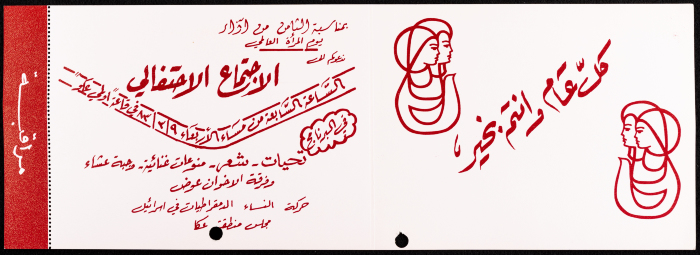 كل عام وانتم بخير،
بمناسبة الثامن من آذار
يوم المرأة العالمي
ندعوكم الى
الاجتماع الاحتفالي
الساعة السابعة من مساء الأربعاء ٨٣/٣/٩ في قاعة
في البرنامج
تحيات - شعر - منوعات غنائية - وجبة عشاء
وفرقة الاخوان عوض
حركة النساء الدمقراطيات في اسرائيل
مجلس منطقة عكا
مراقبة